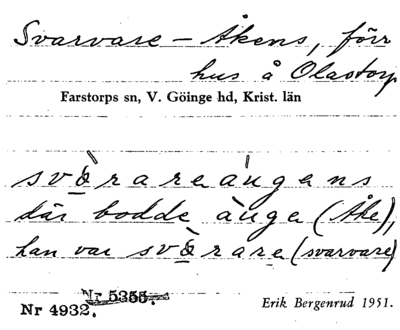 Svarvare – Åkens, förr
hus å Olastorp
Farstorps sn, V. Göinge hd, Krist. län
svàrareàugens
där bodde àuge (Åke),
han var svàrare (svarvare)
Nr 5355.
Nr 4932.
Erik Bergenrud 1951.